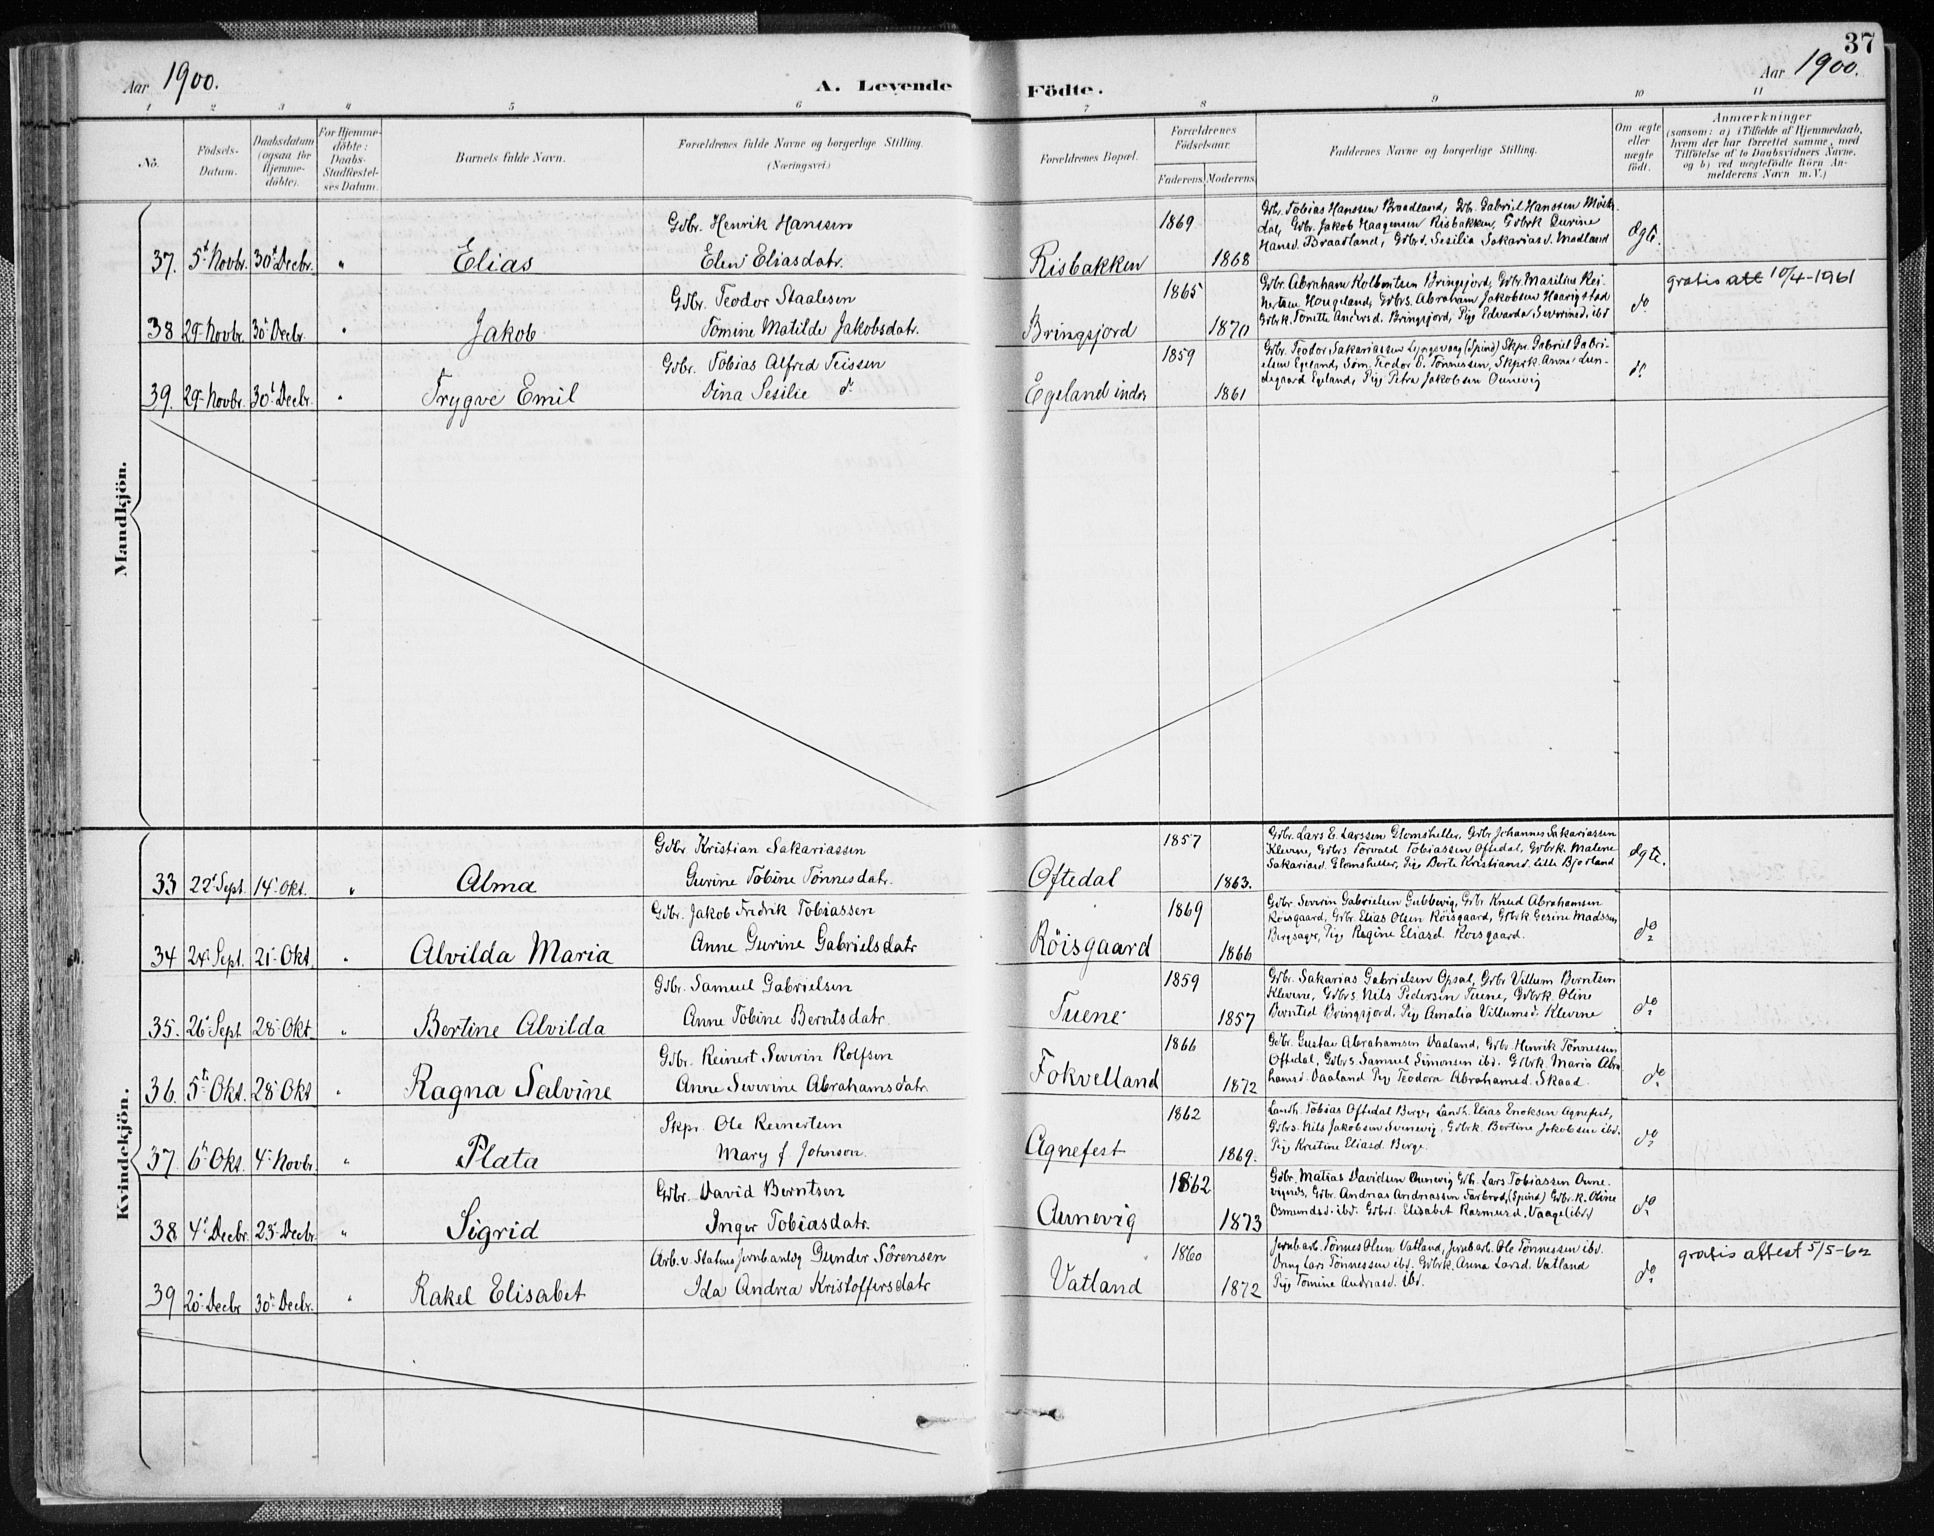 37
Aar 1900.
A. Levende Födte.
Aar 1900.
1 2 3 4 5 6 7 8 9 10 11
No.
Födsels-
Datum.
Daabsdatum
(ogsaa for
Hjemme-
döbte).
For Hjemme-
döbte:
Daabs-
Stadfæstel-
ses Datum.
Barnets fulde Navn.
Forældrenes fulde Navne og borgerlige Stilling.
(Næringsvei.)
Forældrenes Bopæl.
Forældrenes
Födselsaar.
Faderens. Moderens.
Faddernes Navne og borgerlige Stilling.
Om ægte
eller
uægte
födt.
Anmærkninger
(saasom: a) i Tilfælde af Hjemmedaab,
hvem der har forrettet samme, med
Tilföielse af to Daabsvidners Navne,
og b) ved uægtefödte Börn An-
melderens Navn m. V.)
Mandkjön.
Gdbr. Henrik Hanssen 1869
37. 5t Novbr. 30t Decbr. " Elias Elen Eliasdatr. Risbakken 1868
Gdbr. Tobias Hanssen Braadland, Gdb. Gabriel Hanssen
dal, Gdbr. Jakob Haagensen Risbakken, Gdbrk
Hansd. Braadland, Gdbrd. Sesilia Sakariasd. Madland
ægte.
Gdbr. Teodor Staalesen 1865
38 29 Novbr. 30t Decbr. " Jakob Tomine Matilde Jakobsdatr. Bringsjord 1870
Gdbr. Abraham Kolbentsen Bringsjord, Gdbr. Masilius Rei-
nertsen Hougeland, Gdbrs. Abraham Jakobsen Haarigstad
Gdbrk. Tonette Andersd. Bringsjord, Pige Edvarda Severinsd. ibd
do
gratis att 10/4-1961
Gdbr. Tobias Alfred Teissen 1859
39. 29 Novbr. 30t Decbr. " Trygve Emil Tina Sesilie do Egeland indre 1861
Gdbr. Teodor Sakariassen (Spind) Skpr. Gabriel Gabri-
elsen Egeland, Söm. Teodor E. Tönnessen, Skprk. Anna Lun-
degaard Egeland, Pige Petra Jakobsen Ounevig
do
Kvindekjön.
Gdbr. Kristian Sakariassen 1857
33 22 Sept. 14 Okt. " Alma Gurine Tobine Tönnesdatr. Oftedal 1863.
Gdbr. Lars E. Larssen Glomsheller, Gdbr Johannes Sakariassen
Klevene, Gdbrs Torvald Tobiassen Oftedal, Gdbrk. Malene
Sakariasd. Glomsheller, Pige Berte Kristiansd. Lille Bjorland
ægte.
Gdbr. Jakob Fredrik Tobiassen 1869
34 24 Sept. 21 Okt. " Alvilda Maria Anne Gurine Gabrielsdatr Röisgaard 1866
Gdbr. Severin Gabrielsen Gubbevig, Gdbr Knud Abrahamsen
Röisgaard, Gdbr. Elias Olsen Röisgaard, Gdbrk Gesine Madssen,
Bergsager, Pige Regine Eliasd. Roisgaard.
do
Gdbr. Samuel Gabrielsen 1859
35. 26 Sept 28 Okt " Bertine Alvilda Anne Tobine Berntsdatr. Tuene 1857
Gdbr. Sakarias Gabrielsen Opsal, Gdbr Villum Berntsen
Klevene, Gdbrs. Nils Pedersen Tuene, Gdbrk. Oline
Berntsd Bringsjord, Pige Amalia Villumsd. Klevene
do
Gdbr. Reinert Severin Rolfsen 1866
36. 5t Okt. 28 Okt " Ragna Salvine Anne Severine Abrahamsdatr. Fokvelland 1872
Gdbr. Gustav Abrahamsen Vaaland, Gdbr. Henrik Tönnessen
Oftedal, Gdbrs Samuel Simonsen ibd. Gdbrk. Maria Abra
hamsd. Vaaland Pige Teodora Abrahamsd. Skaad.
do
Skpr. Ole Reinertsen 1862
37. 6t Okt. 4 Novbr. " Plata Mary f Johnson. Agnefest 1869.
Landh. Tobias Oftedal Berge, Landh. Elias Enoksen Agnefest,
Gdbrs. Nils Jakobsen Svenevig, Gdbrk. Bertine Jakobsen ibd.
Pige Kristine Eliasd Berge.
do
Gdbr. David Berntsen 1862
38 4t Decbr. 23 Decbr. " Sigrid Inger Tobiasdatr. Aunevig 1873
Gdbr. Matias Davidsen Ounevig Gdb. Lars Tobiassen Oune-
vignes, Gdbr. Andreas Andreassen Farbrod, (Spind) Gdbr. k. Oline
Osmundsd. ibd. Gdbrd. Elisabet Rasmusd. Vaage(ibd.)
do
Arb. v. Statens Jernbanlæg Gunder Sörensen 1860
39 20 Decbr 30 Decbr. " Rakel Elisabet Ida Andrea Kristoffersdatr Vatland 1872
Jernbarb. Tönnes Olsen Vatland, Jernbarb. Ole Tönnessen ibd.
Ung. Lars Tönnessen ibd. Gdbrk. Anna Larsd. Vatland
Pige Tomine Andreasd. ibd.
do
gratis attest 5/5-62